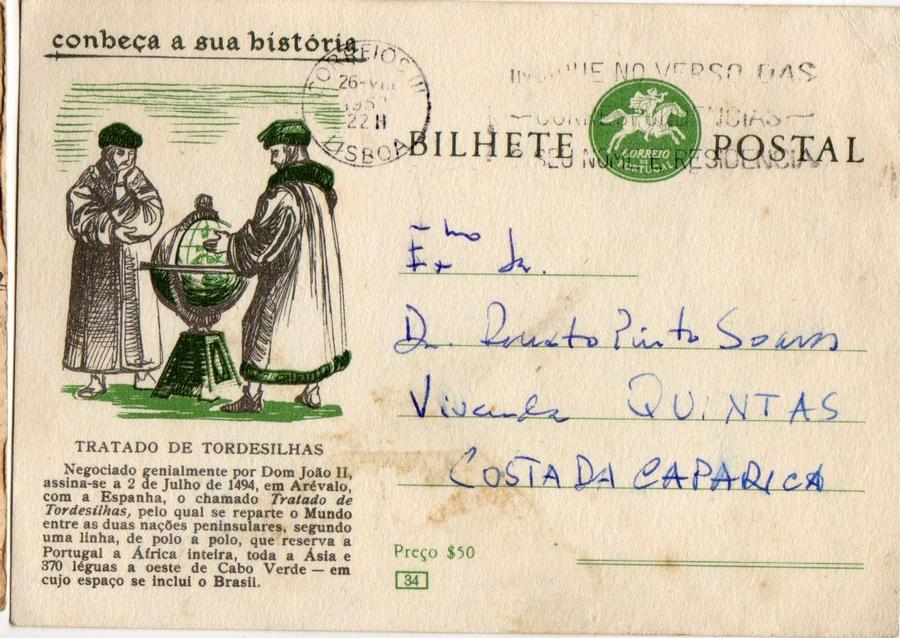 conheça a sua história
CORREIOS
26-VIII
22 H
LISBOA
INDIQUE NO VERSO DAS
CORRESPONDENCIAS
O SEU NOME E RESIDENCIA
BILHETE POSTAL
CORREIO
DE
PORTUGAL
Exmo Sr.
Dr. Renato Pinto Soares
Vivenda QUINTAS
COSTA DA CAPARICA
TRATADO DE TORDESILHAS
Negociado genialmente por Dom João II,
assina-se a 2 de Julho de 1494, em Arévalo,
com a Espanha, o chamado Tratado de
Tordesilhas, pelo qual se reparte o Mundo
entre as duas nações peninsulares, segundo
uma linha, de polo a polo, que reserva a
Portugal a África inteira, toda a Ásia e
370 léguas a oeste de Cabo Verde — em
cujo espaço se inclui o Brasil.
Preço $50
34